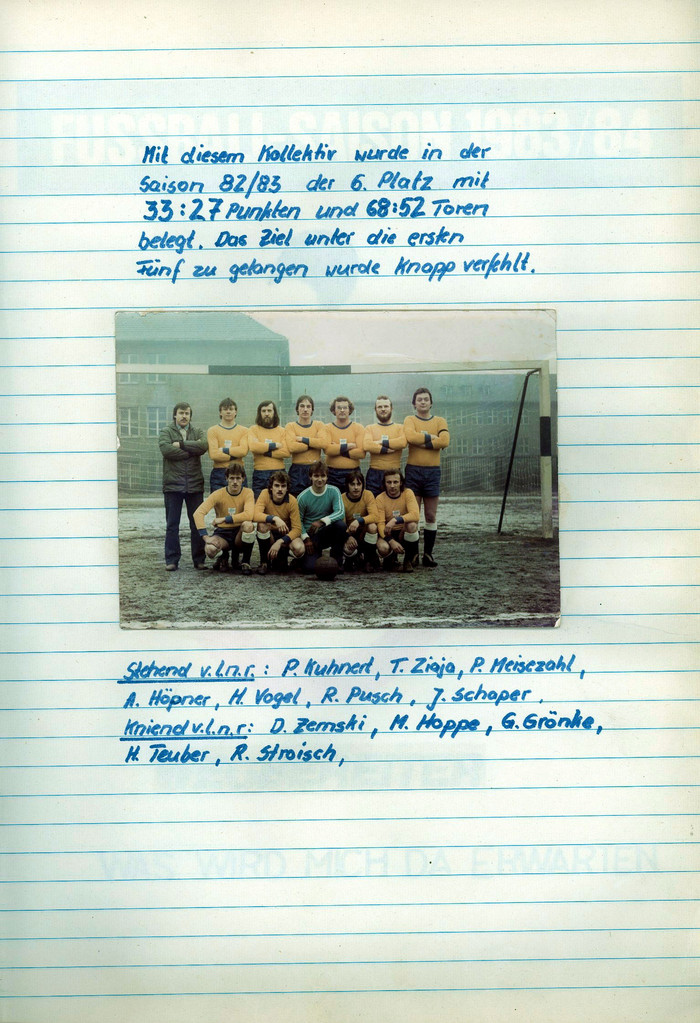 FUSSBALL SAISON 1983/84
Mit diesem Kollektiv wurde in der
Saison 82/83 der 6. Platz mit
33:27 Punkten und 68:52 Toren
belegt. Das Ziel unter die ersten
Fünf zu gelangen wurde Knapp verfehlt.
Stehend v.l.n.r.: P. Kuhnert, T. Ziaja, P. Meisezahl,
A. Höpner, H. Vogel, R. Pusch, J. Schaper,
Kniend v.l.n.r: D. Zemski, M. Hoppe, G. Grönke,
H. Teuber, R. Stroisch,
WAS WIRD MICH DA ERWARTEN